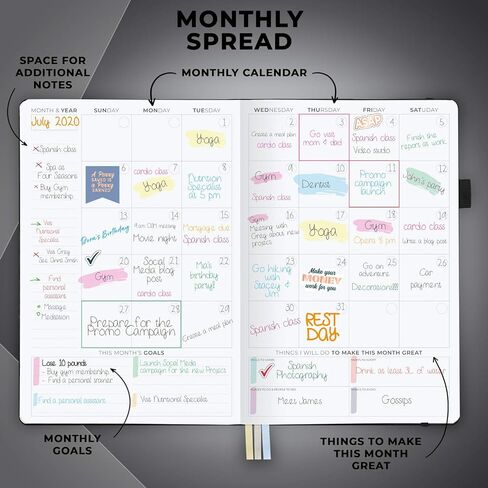 MONTHLY
SPREAD
SPACE FOR
ADDITIONAL
NOTES
MONTHLY CALENDAR
MONTH & YEAR
SUNDAY
MONDAY
TUESDAY
WEDNESDAY
THURSDAY
FRIDAY
SATURDAY
July 2020
1
Yoga
2
Create a meal plan
cardio class
3
Go visit
mom & dad
4
ASAP
Spanish class
Video studio
5
Finish the
report at
work
Spanish class
Spa at
Four Seasons
Buy Gym
membership
6
A Penny
SAVED IS
a Penny
EARNED
7
cardio class
Yoga
8
Nutrition
Specialist
at 5 pm
9
Gym
10
Dentist
11
Promo
campaign
launch
12
cardio class
John's party
Visit
Nutritional
Specialist
Vet Grey
See Chris Smith
13
Dora's Birthday
14
9 am CRM meeting
Movie night
15
Mortgage due
Spanish class
16
Gym
Meeting with
Greg about new
project
17
Yoga
18
Gym
Opera 8 pm
19
cardio class
Write a blog post
Find
personal
assistant
Massage
Meditation
20
Gym
21
Social
Media blog
post
cardio class
22
Mia's
birthday
party!
23
Go hiking
with
Stacey &
Jim
24
Make your
MONEY
work for you
25
Go on
adventure
Decorations!!!
26
Car
payment
27
28
Prepare for the
Promo Campaign
29
Create a meal plan
30
Spanish class
31
REST
DAY
THIS MONTH'S GOALS
THINGS I WILL DO TO MAKE THIS MONTH GREAT
Lose 10 pounds
- Buy gym membership
- Find a personal trainer
Launch Social Media
campaign for the new Project
Spanish
Photography
Drink at least 3L of water
Find a personal assistant
Visit Nutritional Specialist
Meet James
Gossips
MONTHLY
GOALS
THINGS TO MAKE
THIS MONTH
GREAT